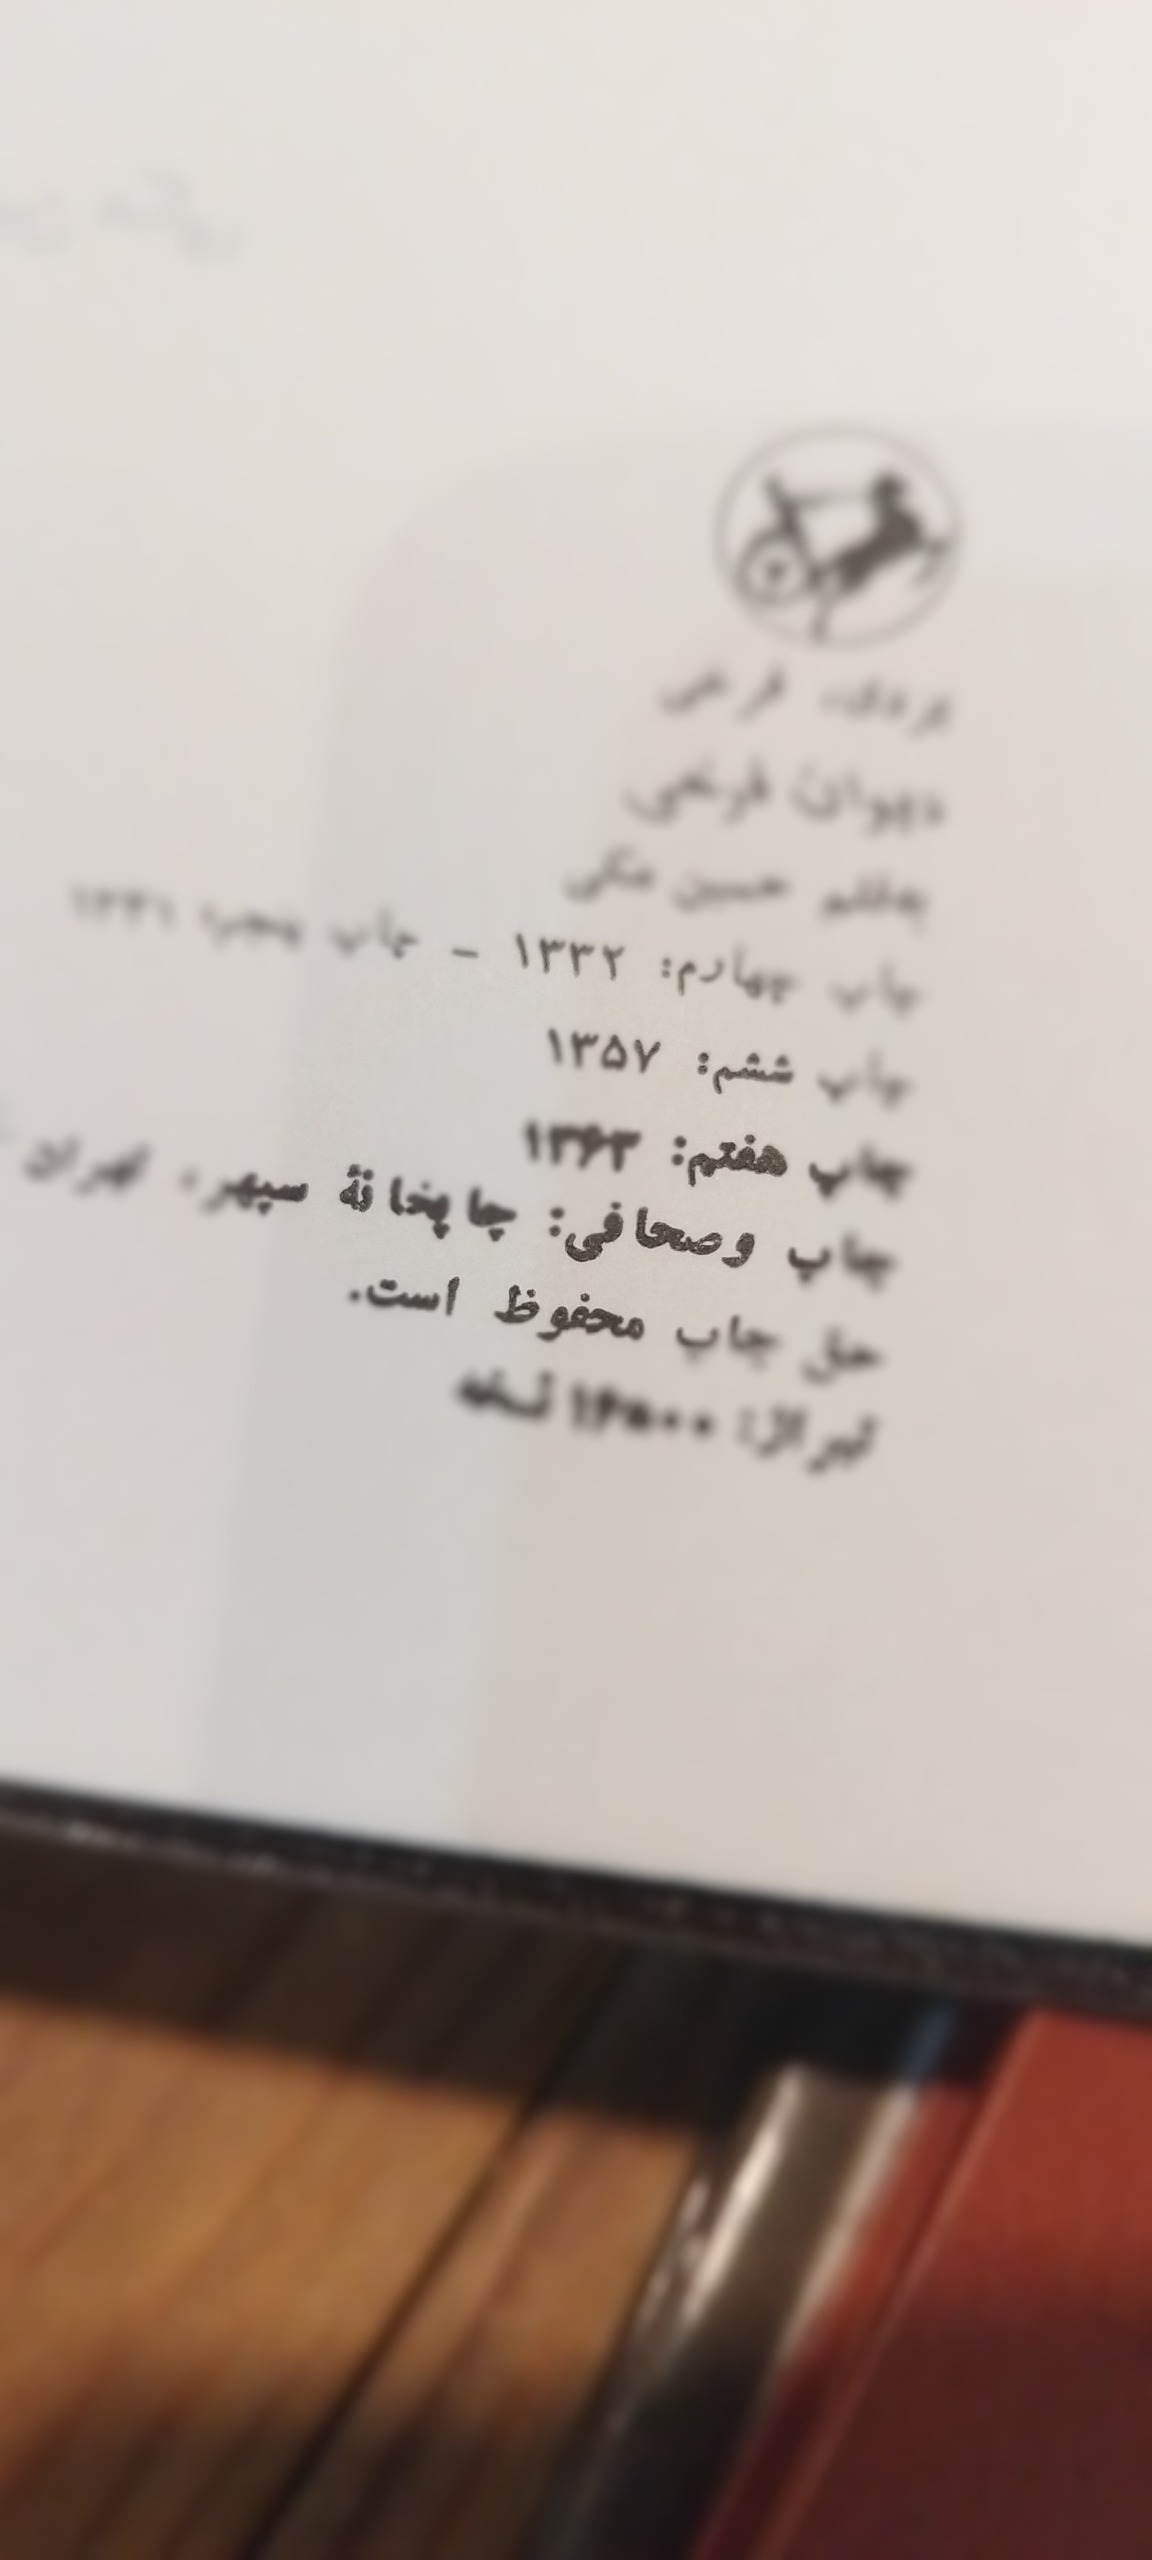 دیوان فرخی
به‌قلم حسین مکی
چاپ چهارم: ۱۳۳۲ - چاپ پنجم:
چاپ ششم: ۱۳۵۷
چاپ هفتم: ۱۳۶۳
چاپ وصحافی: چاپخانهٔ سپهر، تهران
حق چاپ محفوظ است.
تیراژ: ۱۶۵۰۰ نسخه